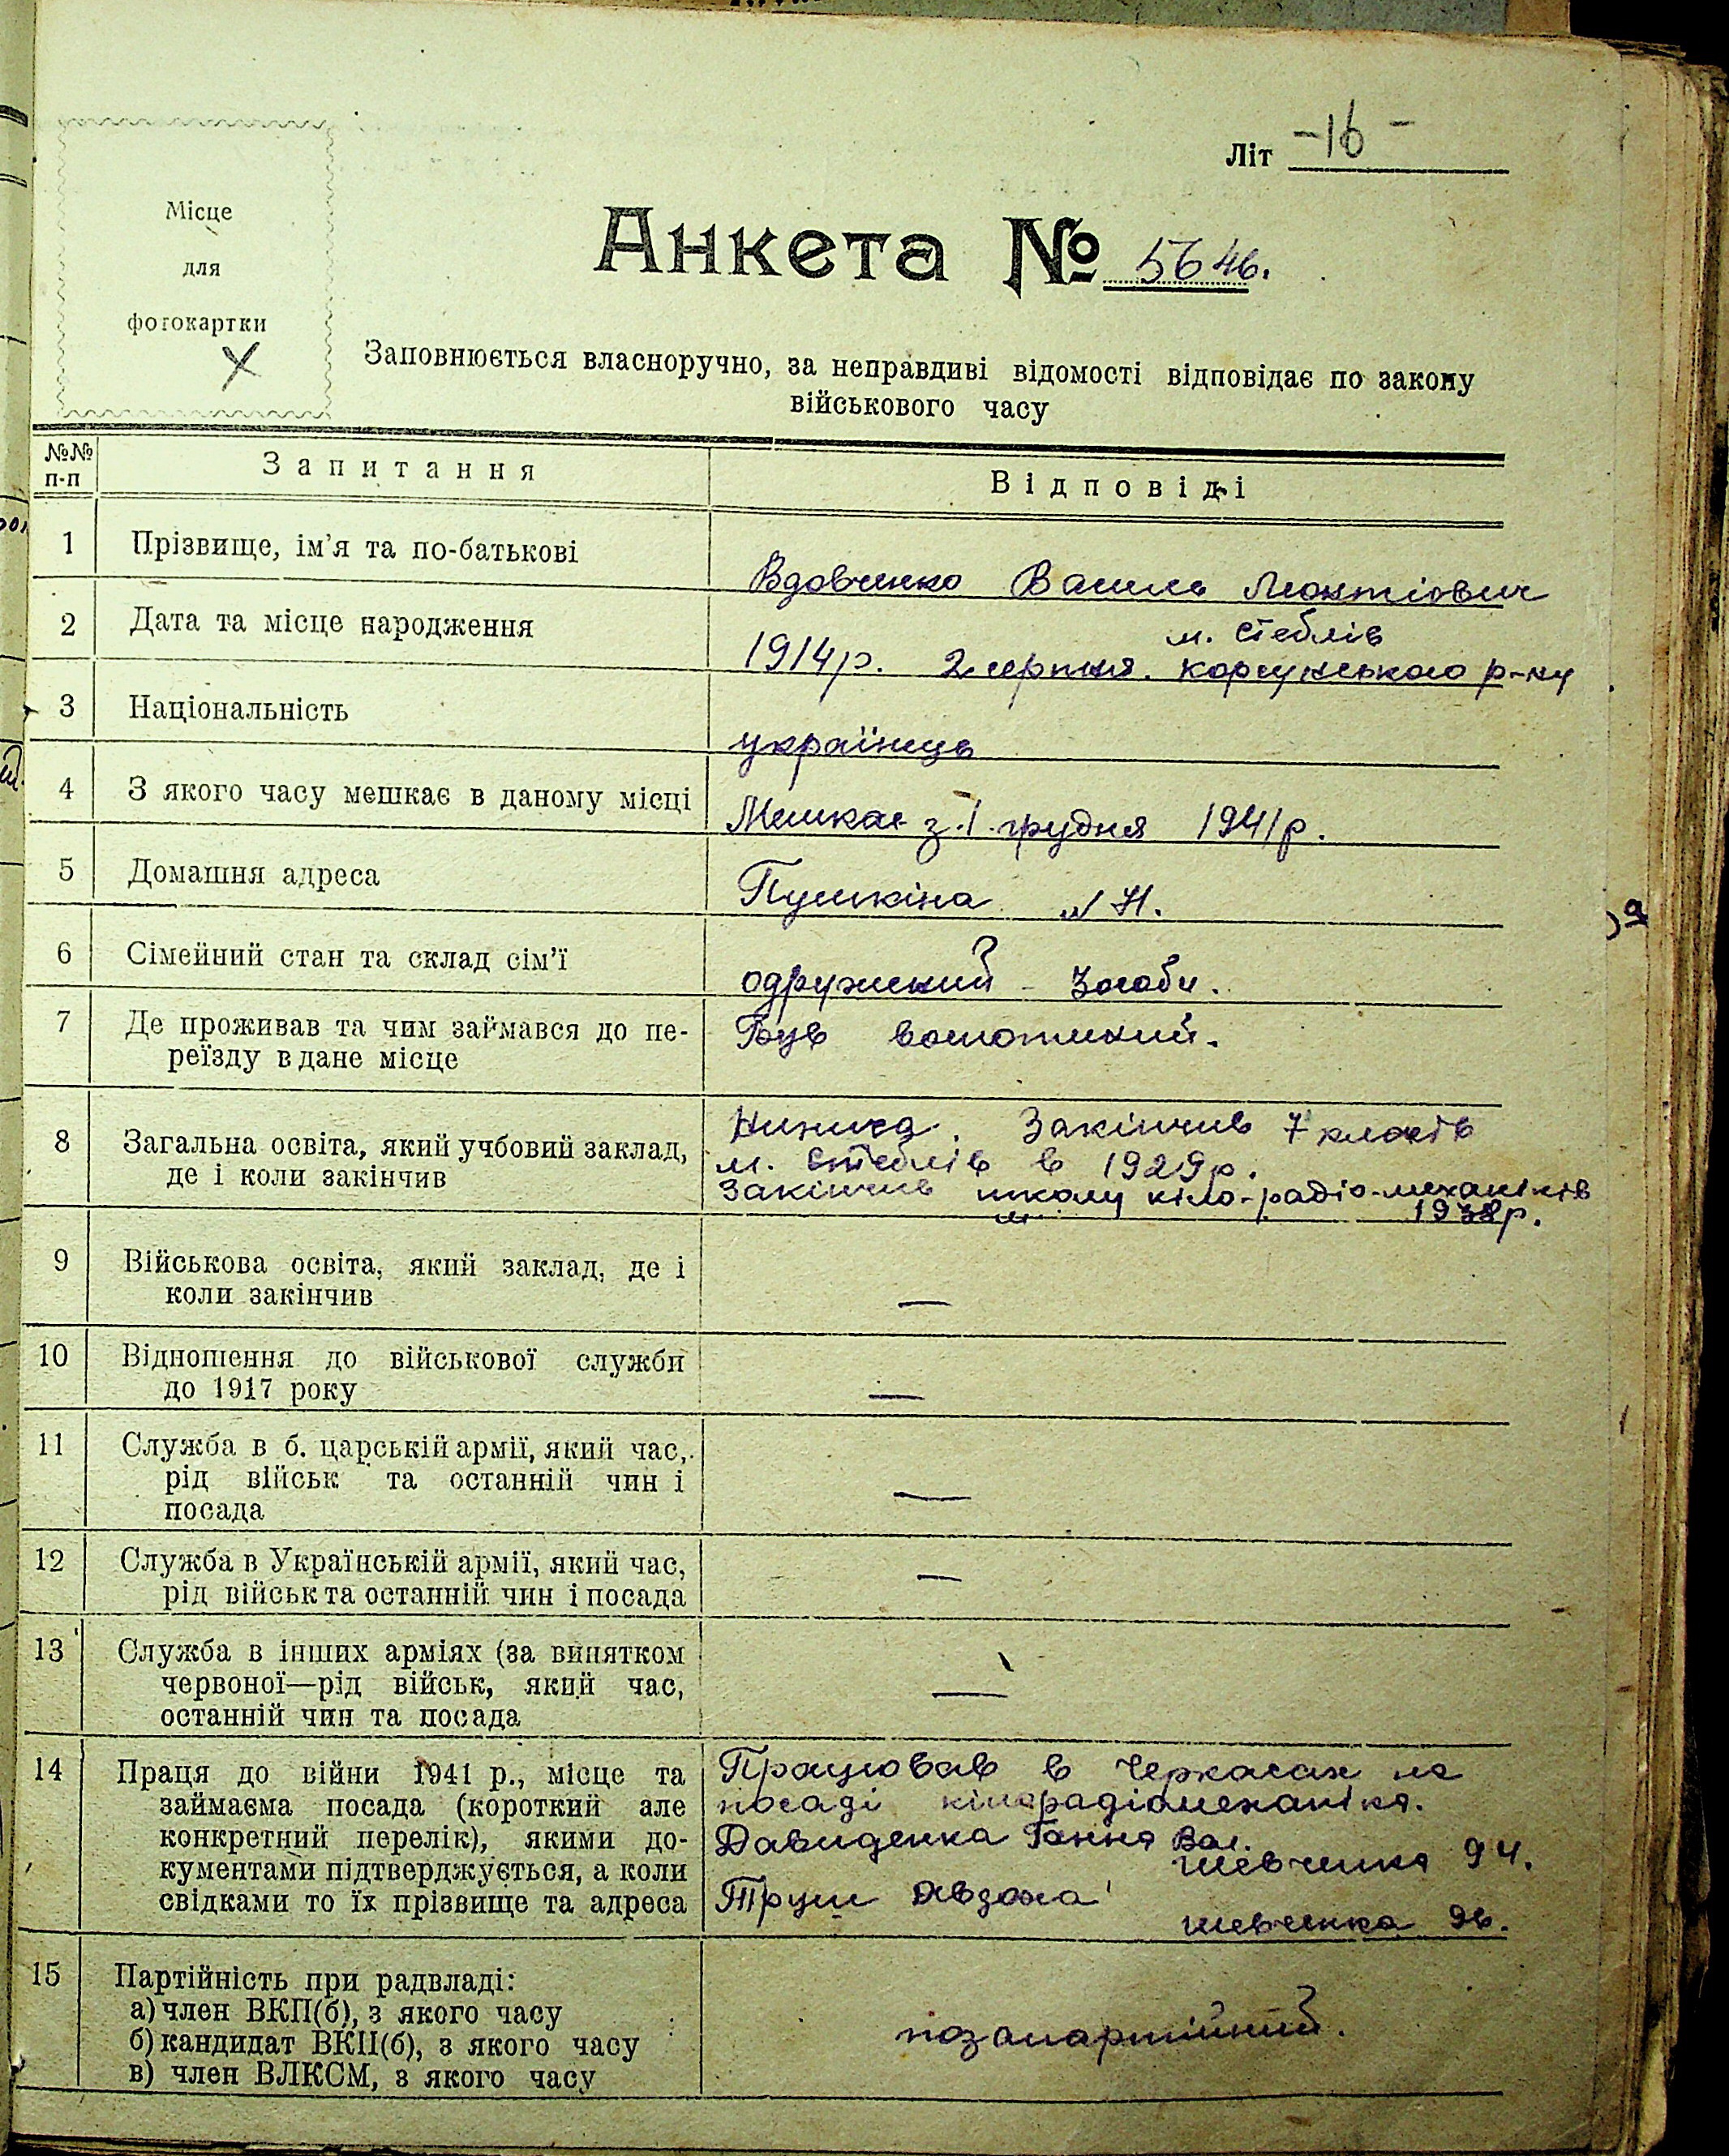 Літ -16-
Місце
для
фотокартки
Анкета № 5646.
Заповнюється власноручно, за неправдиві відомості відповідає по закону
військового часу
№№
п-п
Запитання
Відповіді
1 Прізвище, ім'я та по-батькові
Вдовченко Василь Леонтіович
2 Дата та місце народження
м. Стеблів
1914р. 2 серпня. корсунського р-ну
3 Національність
українець
4 З якого часу мешкає в даному місці
Мешкає з 1 грудня 1941р.
5 Домашня адреса
Пушкіна
6 Сімейний стан та склад сім'ї
одружений - 3 особи.
7 Де проживав та чим займався до пе-
реїзду в дане місце
Був
8 Загальна освіта, який учбовий заклад,
де і коли закінчив
Нинича. Закінчив 7 класів
м. Стеблів в 1929р.
Закінчив школу кіло-радіо-механіків
1938р.
9 Військова освіта, який заклад, де і
коли закінчив
—
10 Відношення до військової служби
до 1917 року
—
11 Служба в б. царській армії, який час,
рід військ та останній чин і
посада
—
12 Служба в Українській армії, який час,
рід військ та останній чин і посада
—
13 Служба в інших арміях (за винятком
червоної—рід військ, який час,
останній чин та посада
—
14 Праця до війни 1941 р., місце та
займаєма посада (короткий але
конкретний перелік), якими до-
кументами підтверджується, а коли
свідками то їх прізвище та адреса
Працював в Черкасах на
посаді кінорадіомеханіка.
Давиденка Ганна Вас.
Шевченка 94.
Труш Явдоха
шевченка 96.
15 Партійність при радвладі:
а) член ВКП(б), з якого часу
б) кандидат ВКП(б), з якого часу
в) член ВЛКСМ, з якого часу
позапартійний.